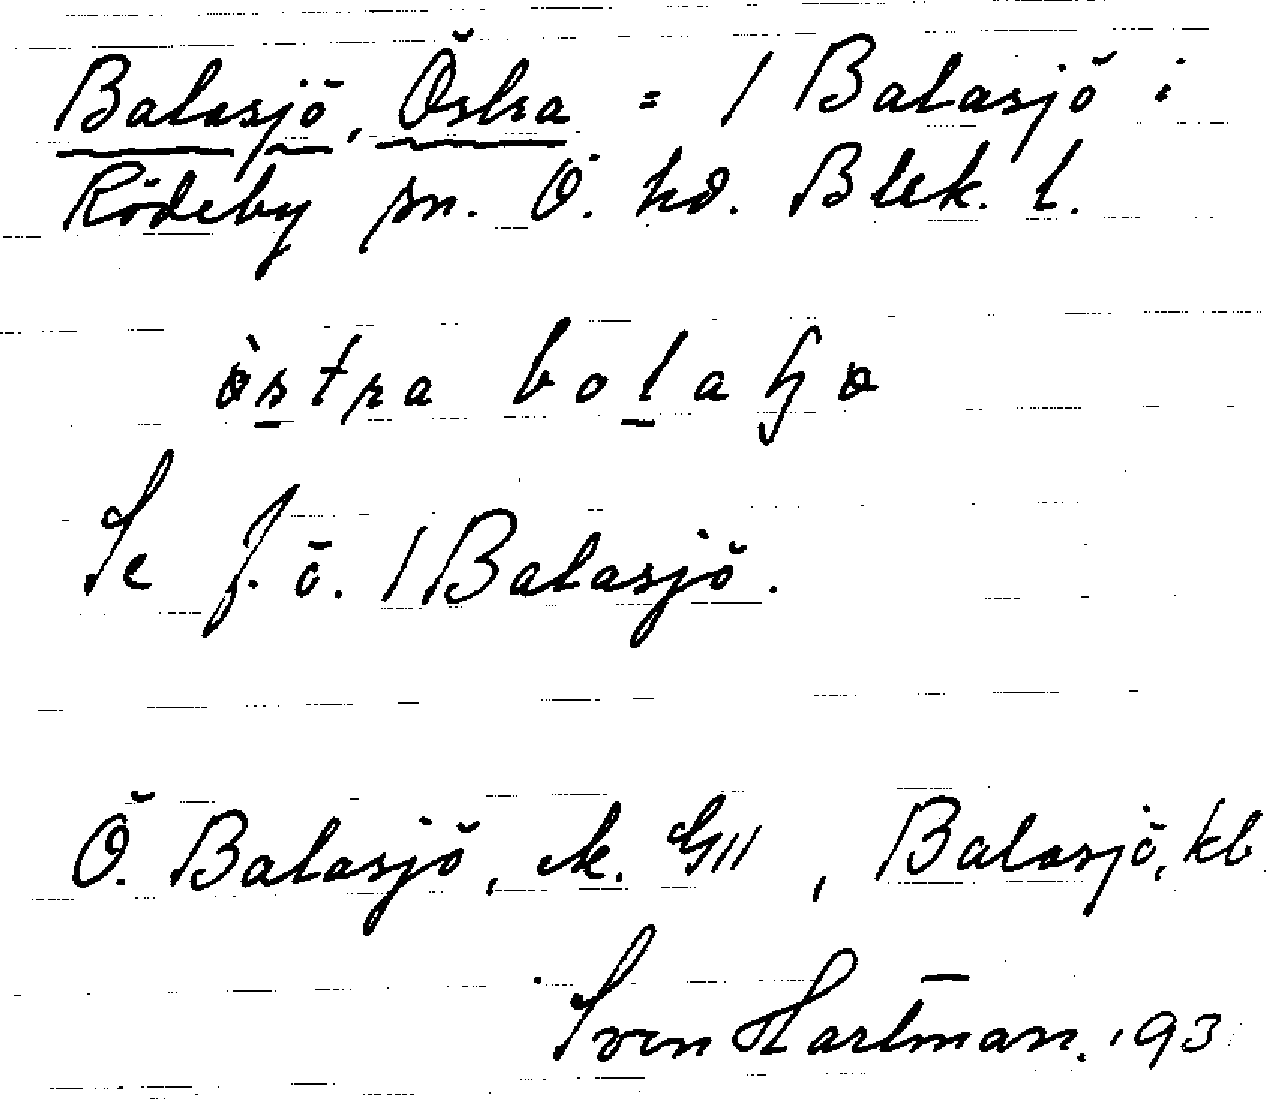 Balasjö, Östra = 1 Balasjö i
Rödeby sn. Ö. hd. Blek. l.
östra bolaʃjø
Se f. ö. 1 Balasjö.
Ö. Balasjö, ek. GII, Balasjö, kb
Sven Hartman. 193